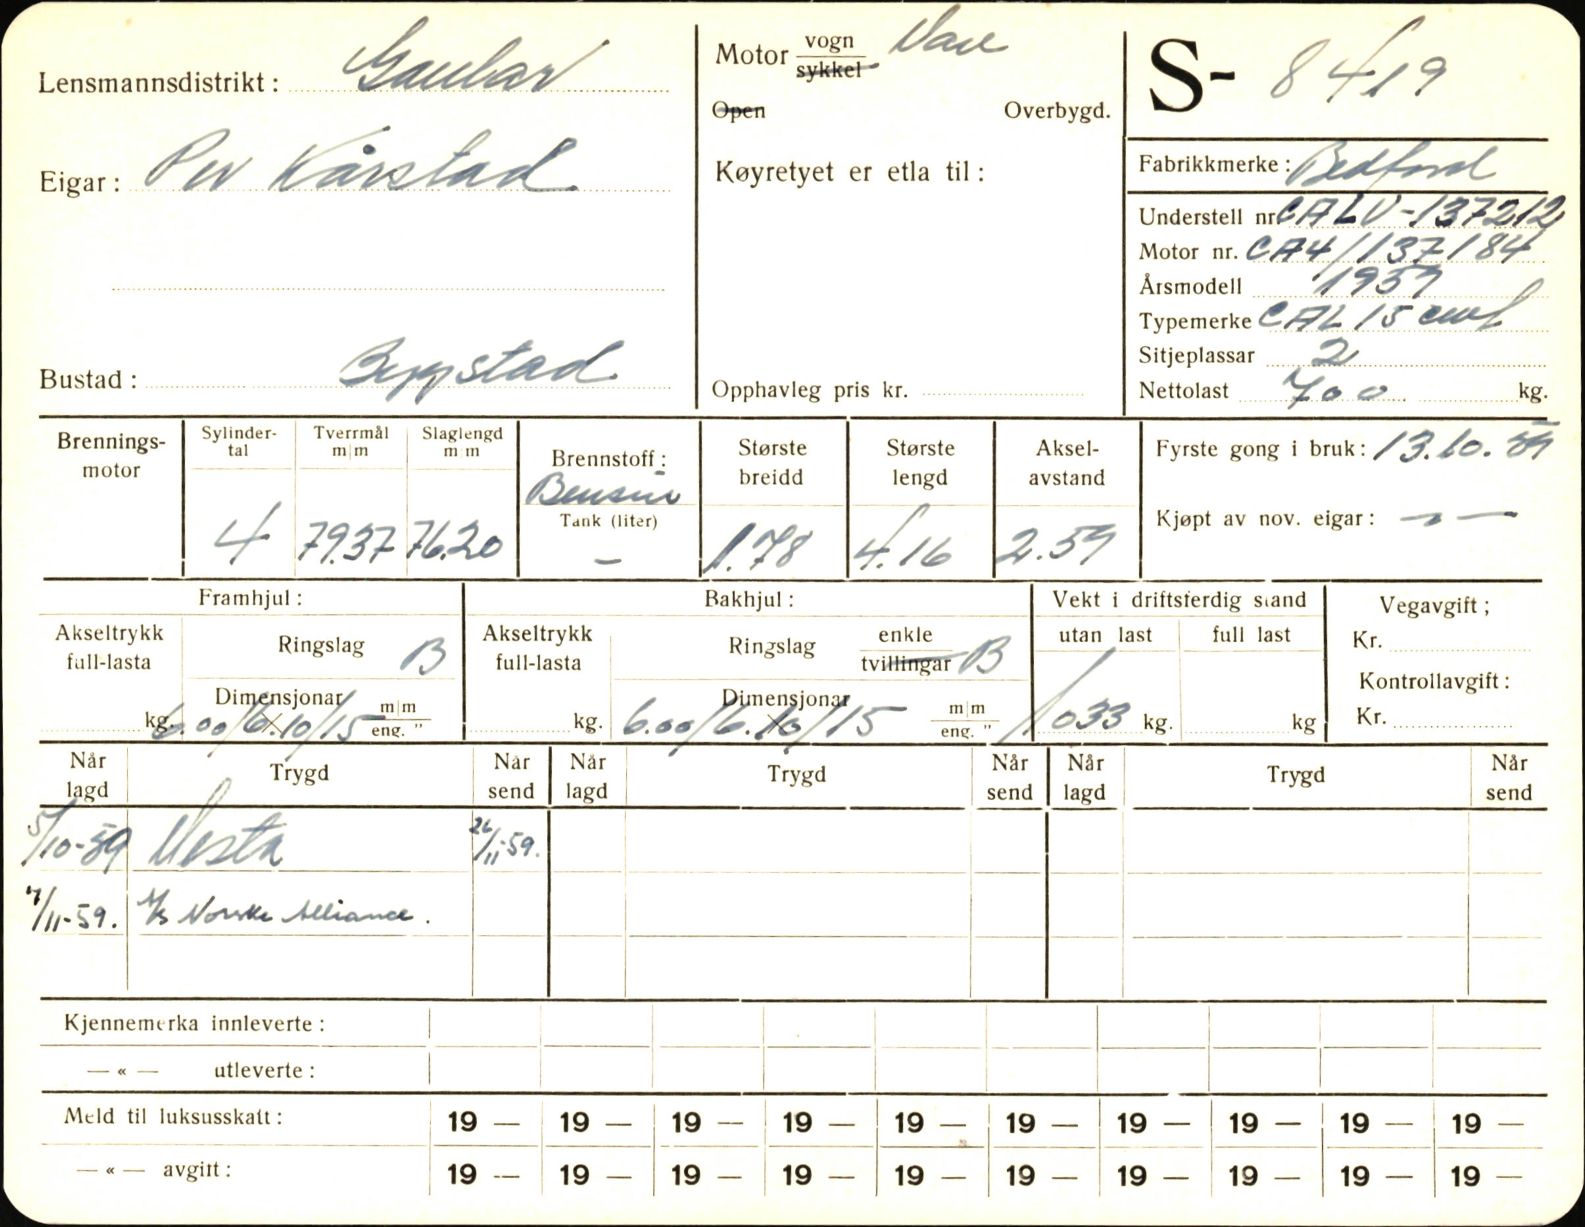 Lensmannsdistrikt: Gaular
Eigar: Per Kårstad
Bustad: Bygstad
Motor vogn Vare
sykkel
Open Overbygd.
Køyretyet er etla til:
Opphavleg pris kr.
S- 8419
Fabrikkmerke: Bedford
Understell nr. CALV-137212
Motor nr. CA4/137184
Årsmodell 1959
Typemerke CAL 15 cwt
Sitjeplassar 2
Nettolast 700 kg.
Brennings-
motor
Sylinder-
tal
4
Tverrmål
m|m
79.37
Slaglengd
m m
76.20
Brennstoff:
Bensin
Tank (liter)
—
Største
breidd
1.78
Største
lengd
4.16
Aksel-
avstand
2.59
Fyrste gong i bruk: 13.10.59
Kjøpt av nov. eigar: — " —
Framhjul:
Akseltrykk
full-lasta
kg.
Ringslag B
Dimensjonar m|m
6.00/6.10/15 eng. "
Bakhjul:
Akseltrykk
full-lasta
kg.
Ringslag enkle
tvillingar B
Dimensjonar m|m
6.00/6.10/15 eng. "
Vekt i driftsferdig stand
utan last full last
1033 kg. kg
Vegavgift;
Kr.
Kontrollavgift:
Kr.
Når
lagd Trygd Når
send Når
lagd Trygd Når
send Når
lagd Trygd Når
send
5/10-59 Vesta 26/11-59.
7/11-59. A/S Norske Alliance.
Kjennemerka innleverte:
— « — utleverte:
Meld til luksusskatt: 19 — 19 — 19 — 19 — 19 — 19 — 19 — 19 — 19 — 19 —
— « — avgift: 19 — 19 — 19 — 19 — 19 — 19 — 19 — 19 — 19 — 19 —